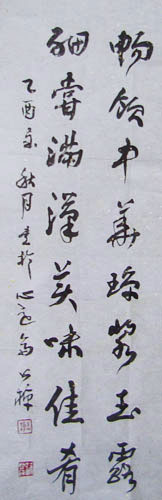 畅饮中华琼浆玉露
细尝满汉美味佳肴
乙酉年秋月書於心逸斋